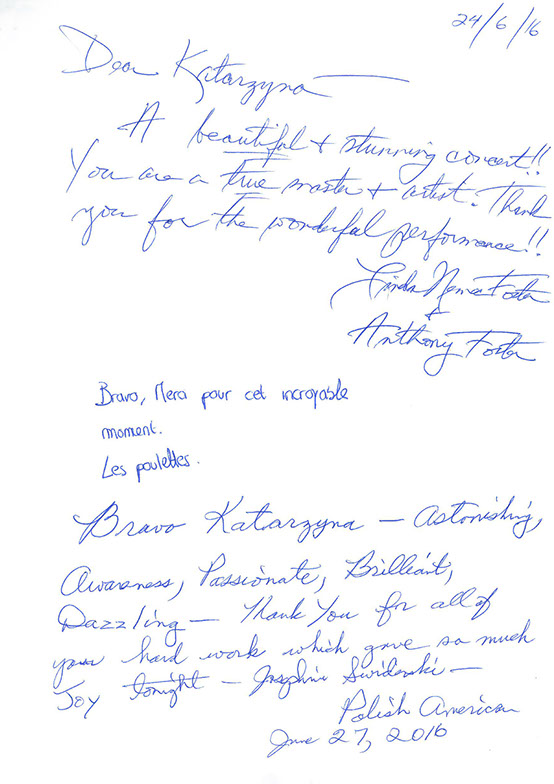 24/6/16
Dear Katarzyna
A beautiful + stunning concert!!
You are a true master + artist. Thank
you for the wonderful performance!!
Linda Nemec Foster
+
Anthony Foster
Bravo, Merci pour cet incroyable
moment.
Les poulettes.
Bravo Katarzyna — Astonishing,
Awareness, Passionate, Brilliant,
Dazzling — Thank You for all of
your hard work which gave so much
Joy tonight — Josephine Swiderski —
Polish American
June 27, 2016